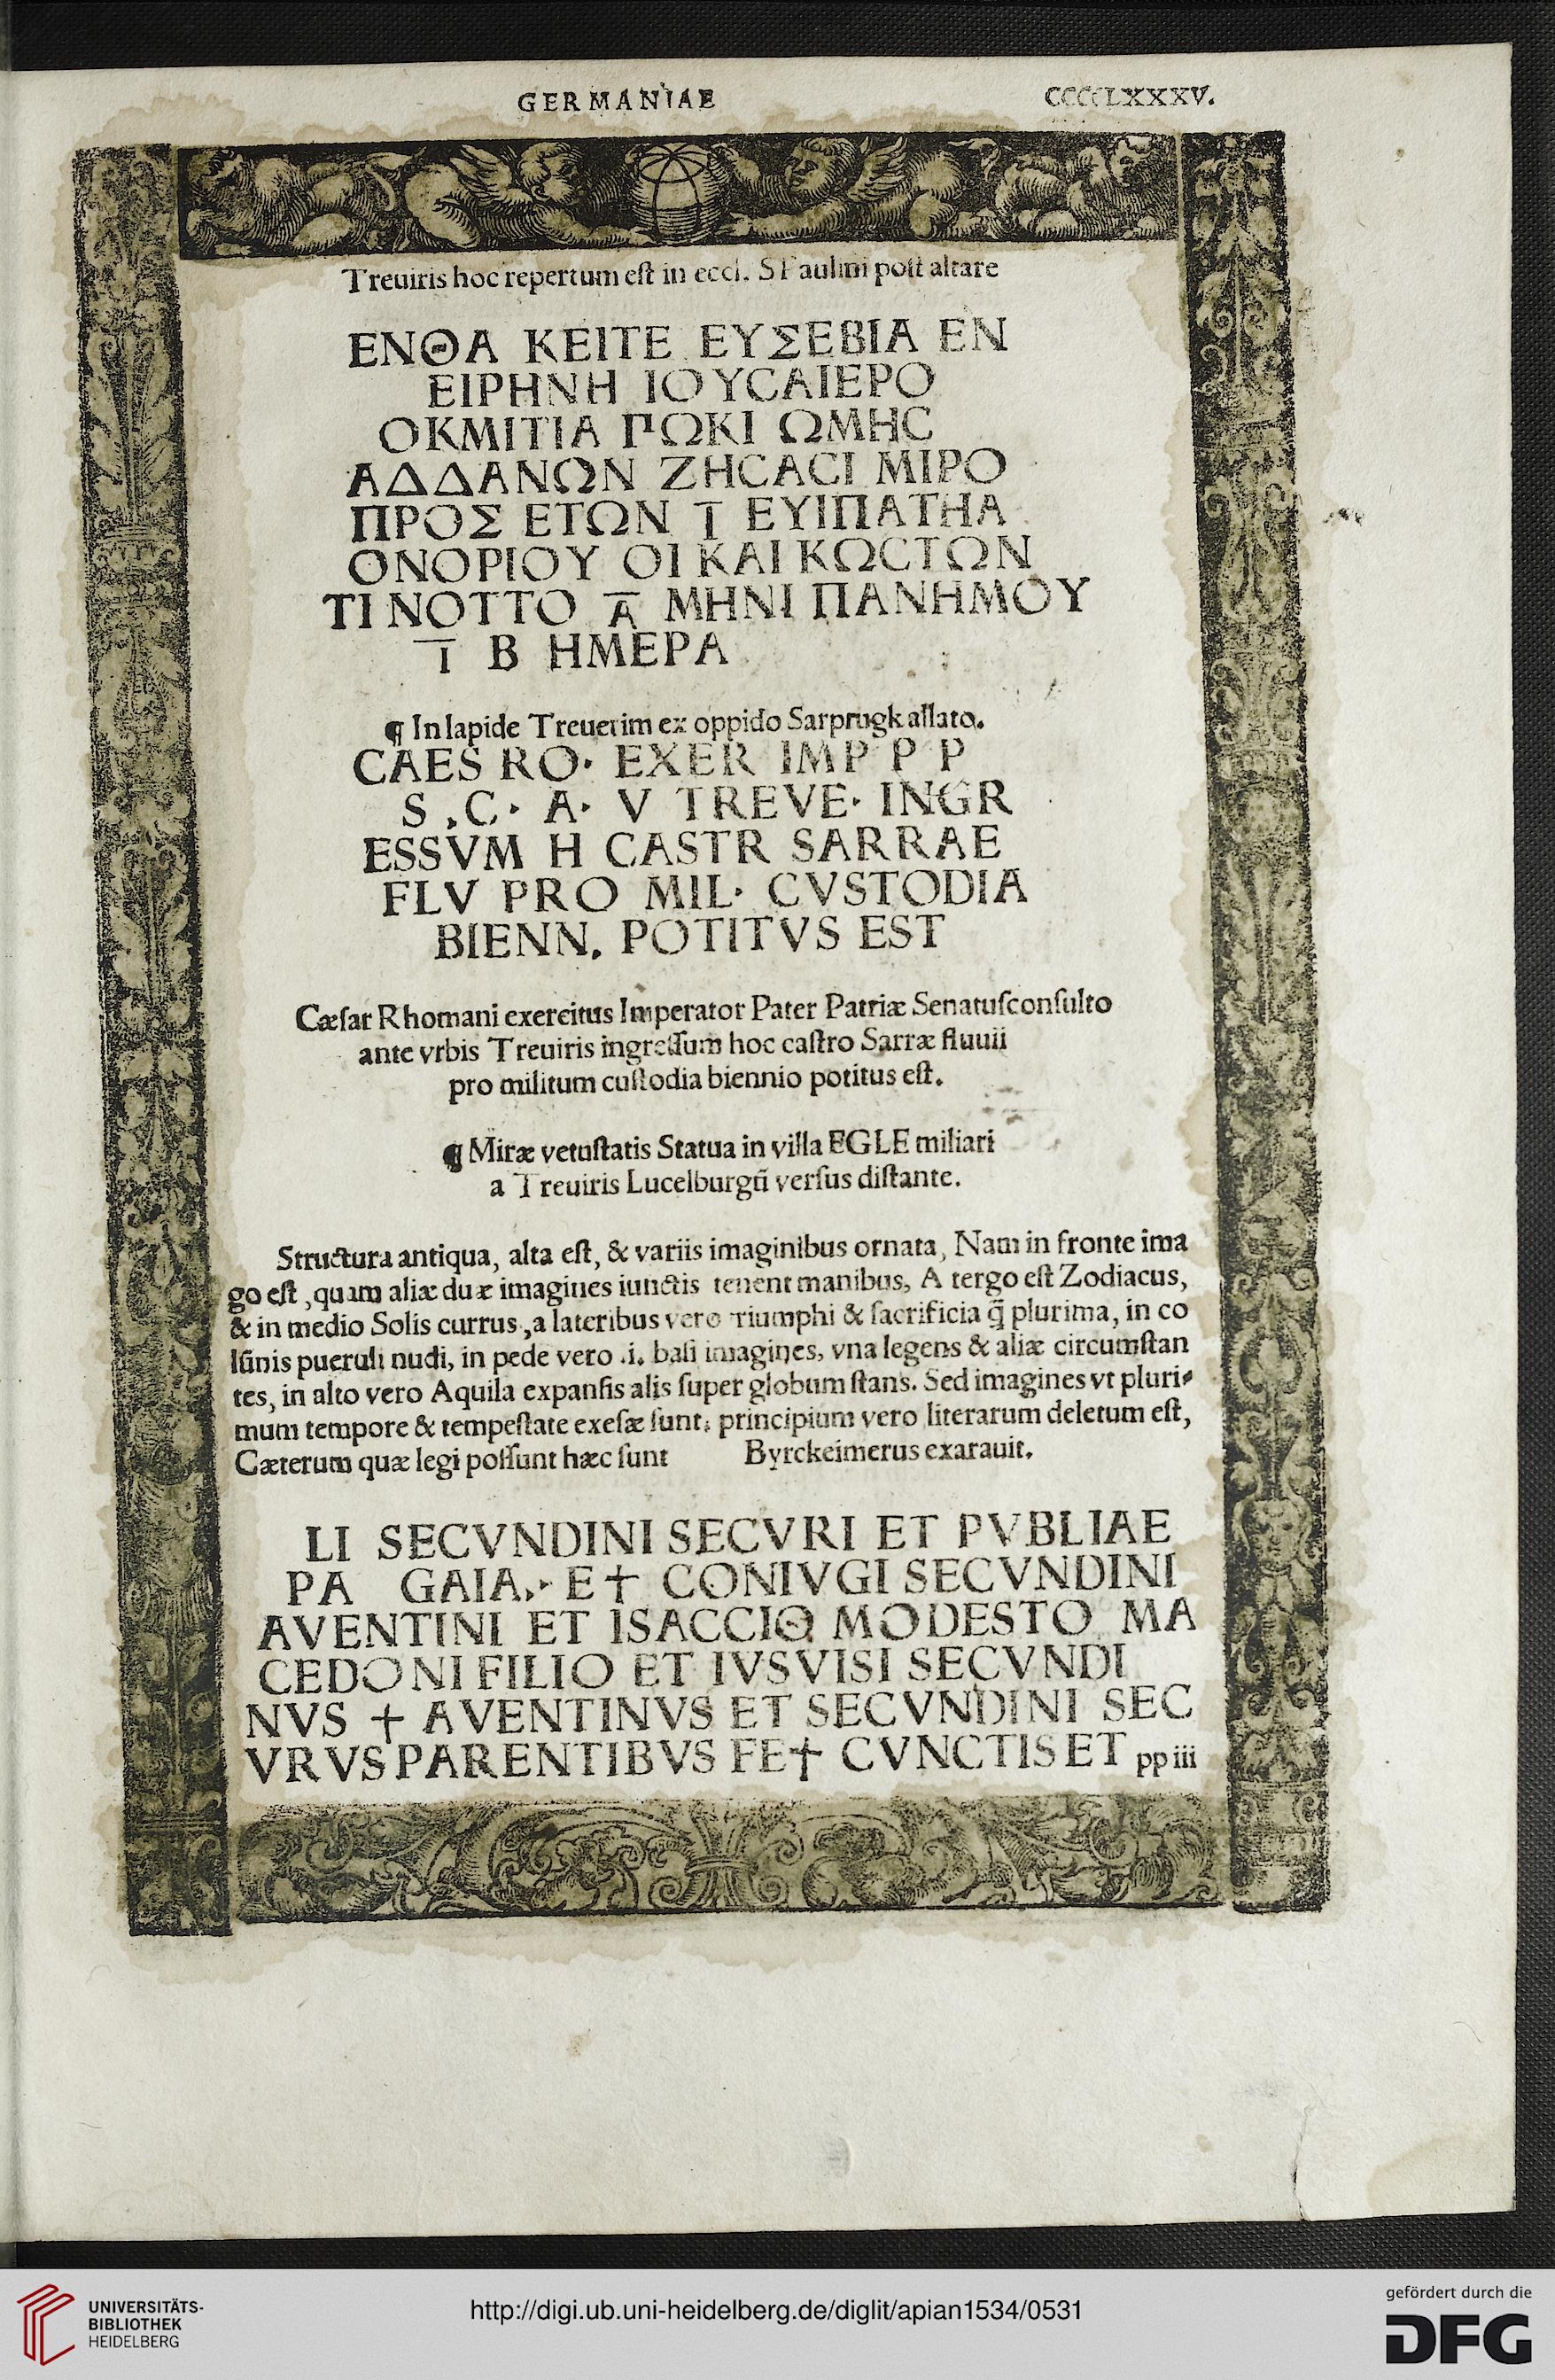 GERMANIAE CCCCLXXXV.
Treuiris hoc repertum eſt in eccl. S Paulini poſt altare
ΕΝΘΑ ΚΕΙΤΕ ΕΥΣΕΒΙΑ ΕΝ
ΕΙΡΗΝΗ ΙΟΥCΑΙΕΡΟ
ΟΚΜΙΤΙΑ ΓΩΚΙ ΩΜΗC
ΑΔΔΑΝΩΝ ΖΗCΑCΙ ΜΙΡΟ
ΠΡΟΣ ΕΤΩΝ Ι̅ ΕΥΙΠΑΤΗΑ
ΟΝΟΡΙΟΥ ΟΙ ΚΑΙ ΚΩCΤΩΝ
ΤΙ ΝΟΤΤΟ Α̅ ΜΗΝΙ ΠΑΝΗΜΟΥ
Ι̅ Β ΗΜΕΡΑ
¶ In lapide Treuerim ex oppido Sarprugk allato.
CAES RO· EXER IMP P P
S .C· A· V TREVE· INGR
ESSVM H CASTR SARRAE
FLV PRO MIL· CVSTODIA
BIENN. POTITVS EST
Cæſar Rhomani exercitus Imperator Pater Patriæ Senatuſconſulto
ante vrbis Treuiris ingreſſum hoc caſtro Sarræ fluuii
pro militum cuſtodia biennio potitus eſt.
¶ Miræ vetuſtatis Statua in villa EGLE miliari
a Treuiris Lucelburgū verſus diſtante.
Structura antiqua, alta eſt, & variis imaginibus ornata, Nam in fronte ima
go eſt, quam aliæ duæ imagines iunctis tenent manibus, A tergo eſt Zodiacus,
& in medio Solis currus, a lateribus vero triumphi & ſacrificia q̃ plurima, in co
lūnis pueruli nudi, in pede vero .i. baſi imagines, vna legens & aliæ circumſtan
tes, in alto vero Aquila expanſis alis ſuper globum ſtans. Sed imagines vt pluri⸗
mum tempore & tempeſtate exeſæ ſunt, principium vero literarum deletum eſt,
Cæterum quæ legi poſſunt hæc ſunt Byrckeimerus exarauit.
LI SECVNDINI SECVRI ET PVBLIAE
PA GAIA.· E✝ CONIVGI SECVNDINI
AVENTINI ET ISACCIO MODESTO MA
CEDONI FILIO ET IVSVISI SECVNDI
NVS ✝ AVENTINVS ET SECVNDINI SEC
VRVS PARENTIBVS FE✝ CVNCTIS ET pp iii
UNIVERSITÄTS-
BIBLIOTHEK
HEIDELBERG
http://digi.ub.uni-heidelberg.de/diglit/apian1534/0531
gefördert durch die
DFG